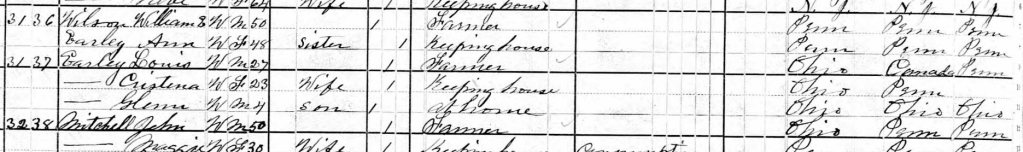 W F 64 Wife 1 Keeping house N. J. N. J. N. J.
31 36 Wilson William E W M 50 1 Farmer Penn Penn Penn
Earley Ann W F 48 sister 1 Keeping house Penn Penn Penn
31 37 Earley Louis W M 27 1 Farmer Ohio Canada Penn
— Cristena W F 23 Wife 1 Keeping house Ohio Penn
— Glenn W M 4 son 1 at home Ohio Ohio Ohio
32 38 Mitchell John W M 50 1 Farmer Ohio Penn Penn
— Maggie W F 30 Wife 1 Keeping house